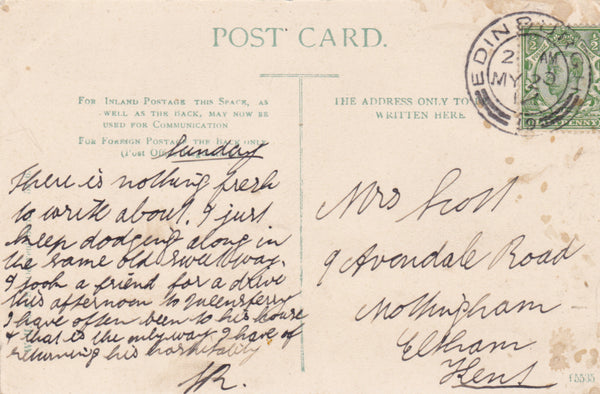 POST CARD.
FOR INLAND POSTAGE THIS SPACE, AS
WELL AS THE BACK, MAY NOW BE
USED FOR COMMUNICATION
FOR FOREIGN POSTAGE THE BACK ONLY
(Post Off
THE ADDRESS ONLY TO
WRITTEN HERE
EDINBURGH
MY 29
12
1/2
1/2
PENNY
Sunday
There is nothing fresh
to write about. I just
keep dodging along in
the same old sweet way.
I took a friend for a drive
this afternoon to Queensferry
I have often been to his house
& that is the only way I have of
returning his hospitality
JR.
Mrs Scott
9 Avondale Road
Mottingham
Eltham
Kent
f5535